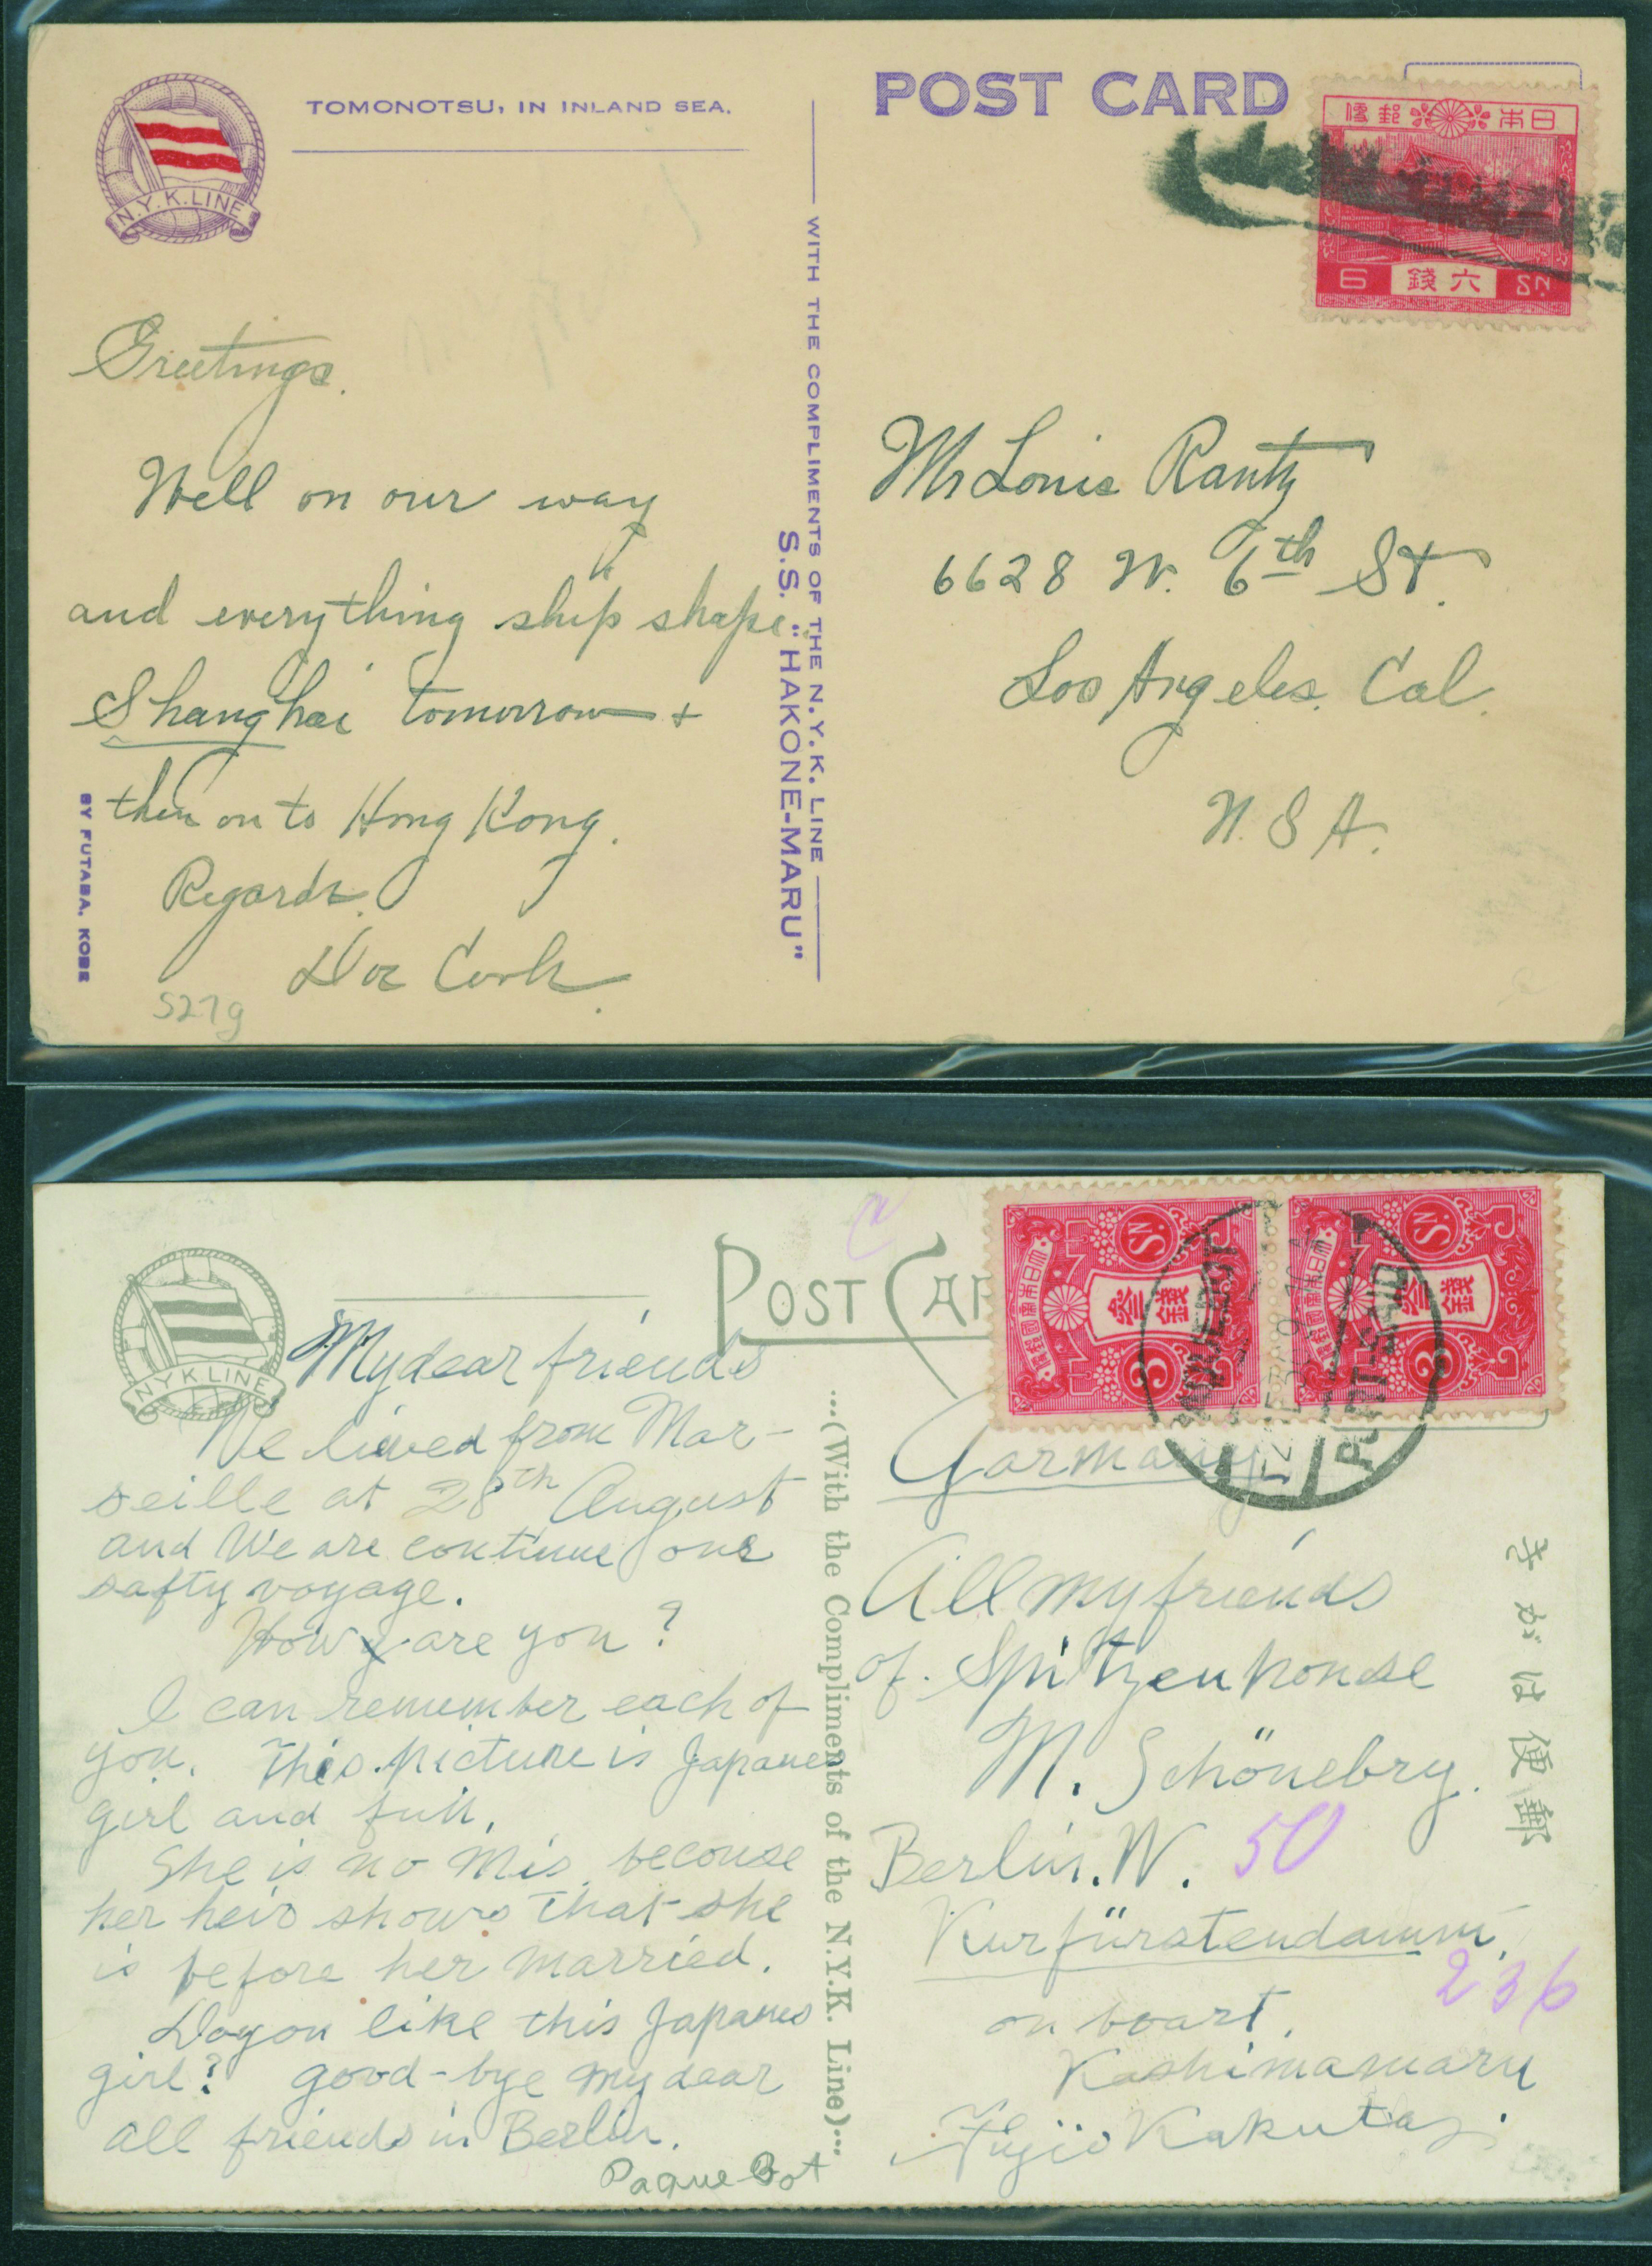 TOMONOTSU, IN INLAND SEA.
N.Y.K.LINE
POST CARD
日本郵便
6 六錢 SN.
Greetings.
Well on our way
and everything ship shape.
Shanghai tomorrow +
then on to Hong Kong.
Regards.
Doc Cook.
S27g
BY FUTABA, KOBE
WITH THE COMPLIMENTS OF THE N.Y.K. LINE
S.S. "HAKONE-MARU"
Mr Louis Rantz
6628 W. 6th St.
Los Angeles. Cal.
U.S.A.
N Y K LINE
POST CAR
大日本帝國郵便
參錢
3 SN.
大日本帝國郵便
參錢
3 SN.
PAQUEBOT
PORT-SAID
My dear friends
We lieved from Mar-
seille at 28th August
and We are continue our
safty voyage.
How are you?
I can remember each of
you. This picture is Japanes
girl and
She is no Mis. becouse
her heir shows that she
is before her married.
Do you like this Japanes
girl? good-bye my dear
all friends in Berlin.
Paquebot
...(With the Compliments of the N.Y.K. Line)...
Garmany
All my friends
of. Spitzen house
M. Schönebry.
Berlin. W. 50
Kurfürstendamm,
236
on boart.
Kashimamaru
Fujio Kakuta
きがは便郵